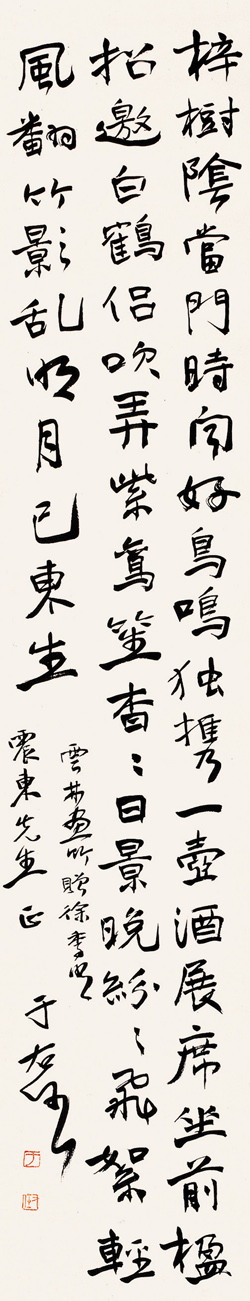 梓樹陰當門時闻好鳥鳴独携一壺酒展席坐前楹
招邀白鶴侶吹弄紫鸞笙杳〻日景晚紛〻飛絮輕
風翻竹影乱明月已東生
雲林畫竹贈徐季明
震東先生正
于右任